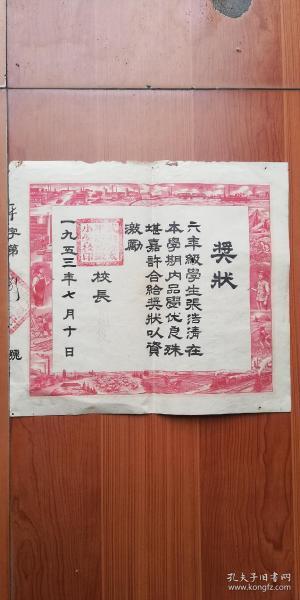 獎狀
六年級學生張浩清在
本學期內品學优良殊
堪嘉許合給獎狀以資
激勵
校長
一九五三年七月十日
字第
號
孔夫子旧书网